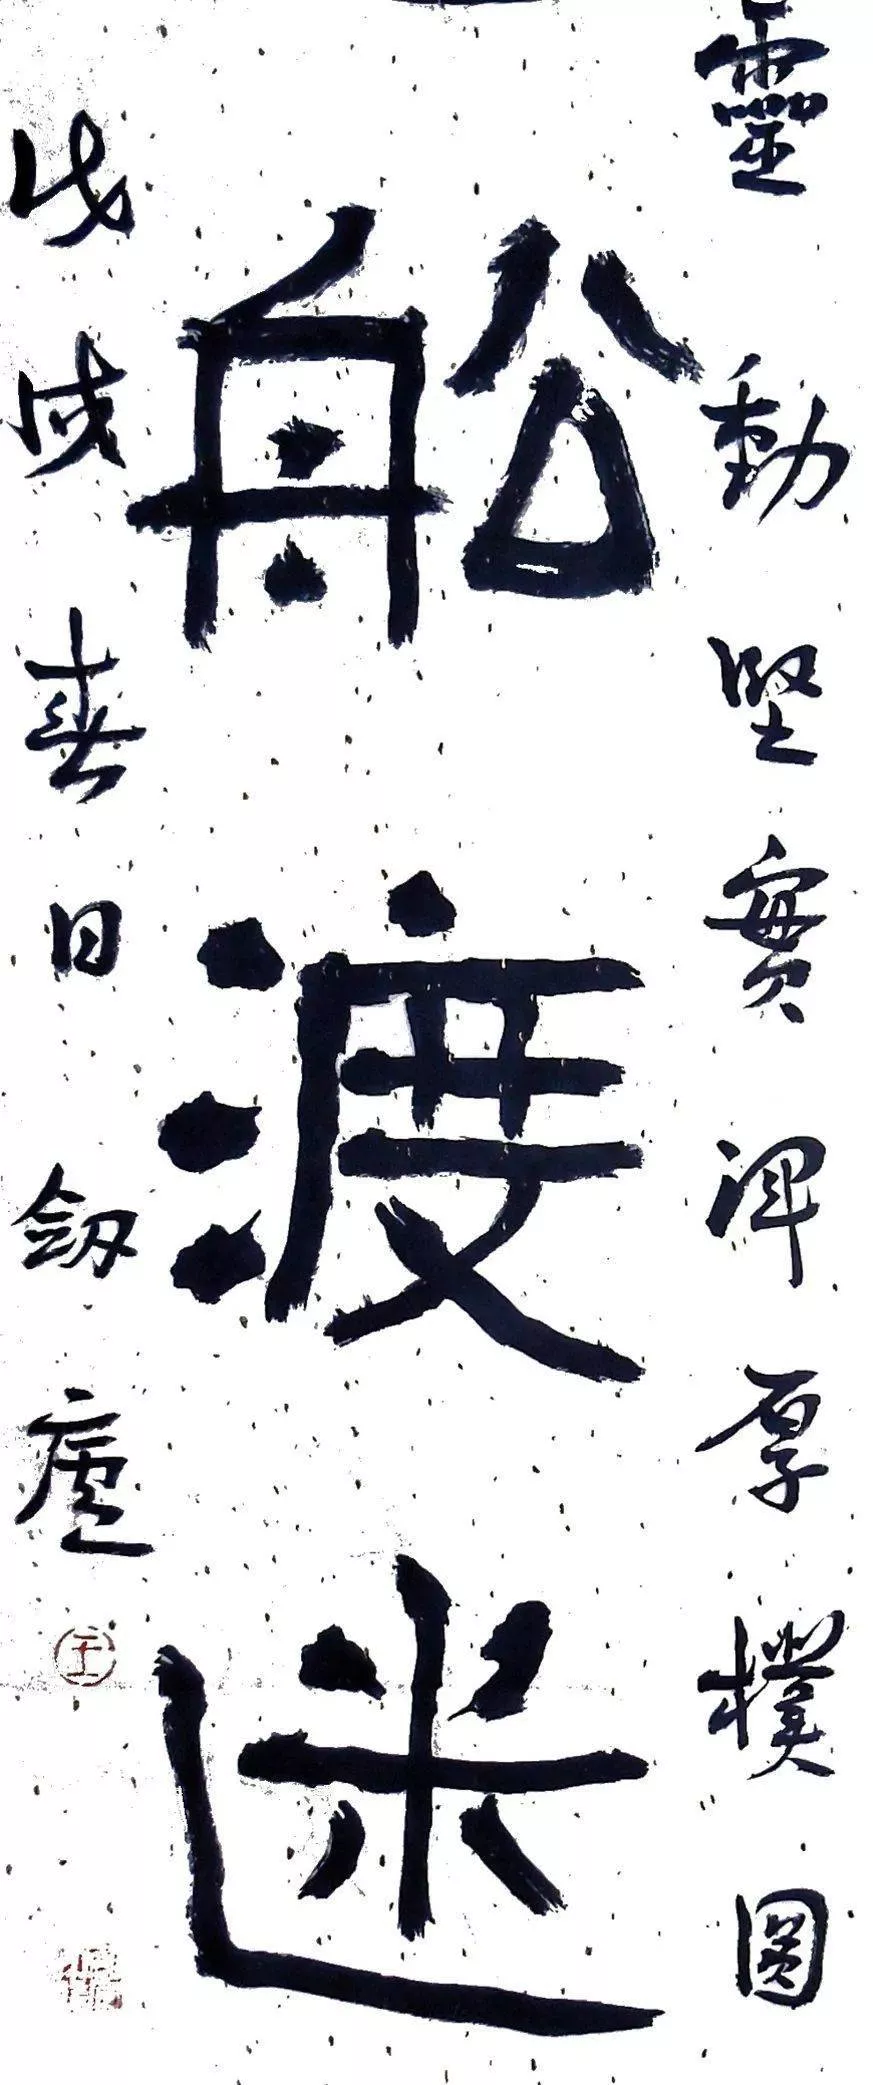 靈動堅實渾厚樸圓
船渡迷
戊戌春日劒廬